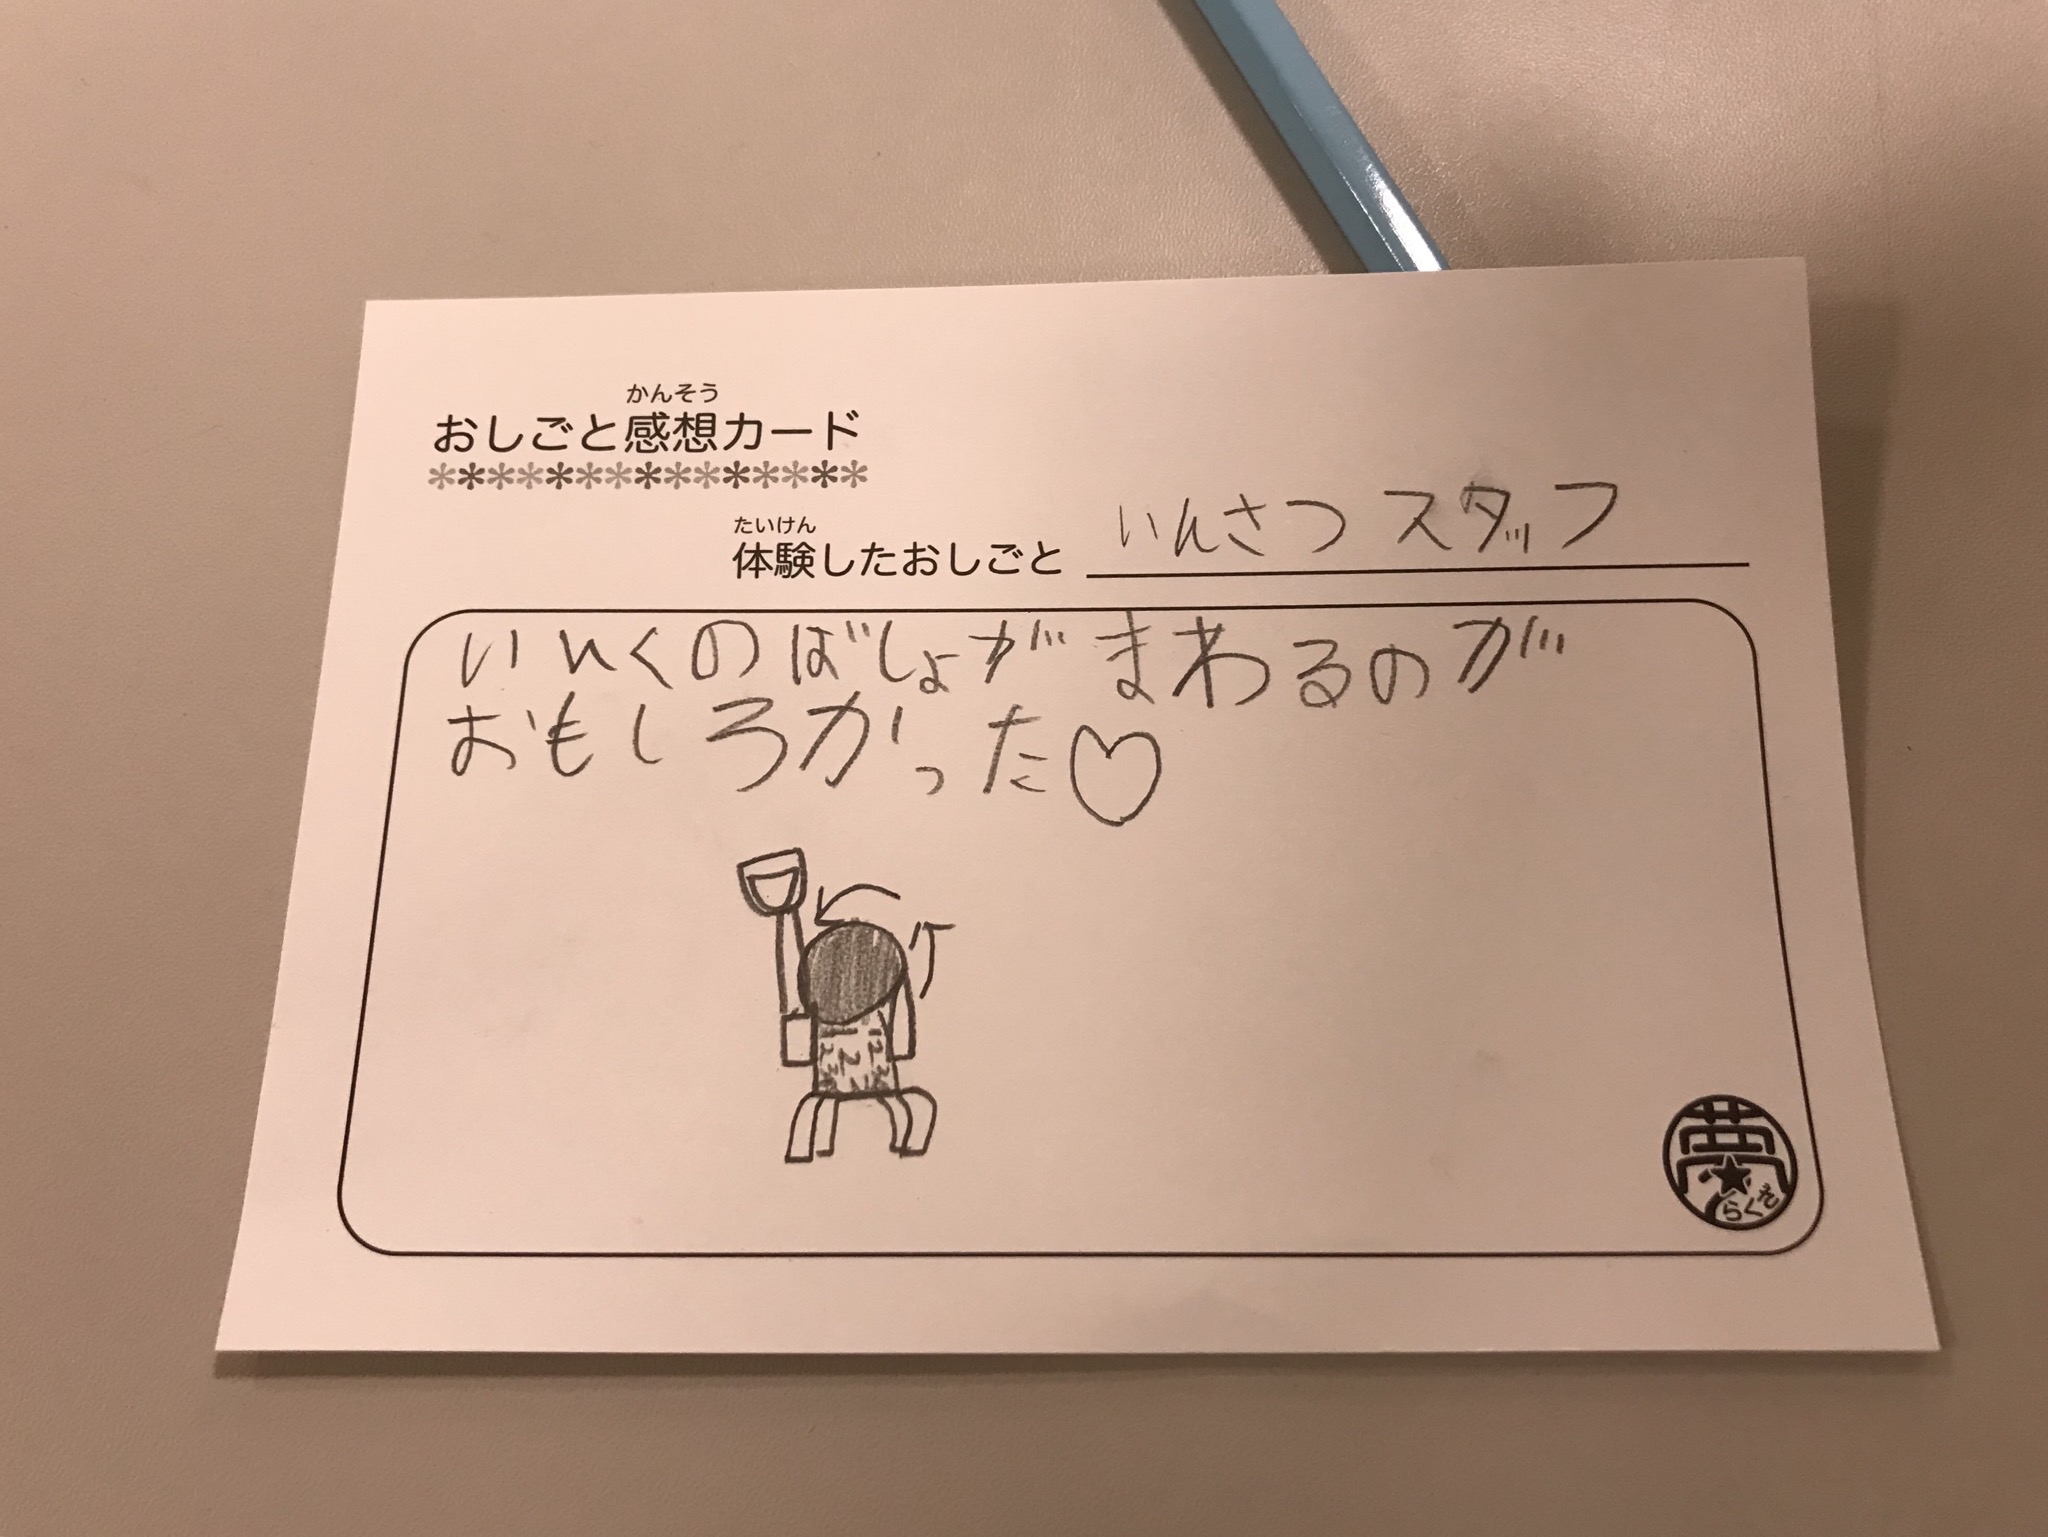 かんそう
おしごと感想カード
たいけん
体験したおしごと いんさつスタッフ
いんくのばしょがまわるのが
おもしろかった♡
夢
らくざ